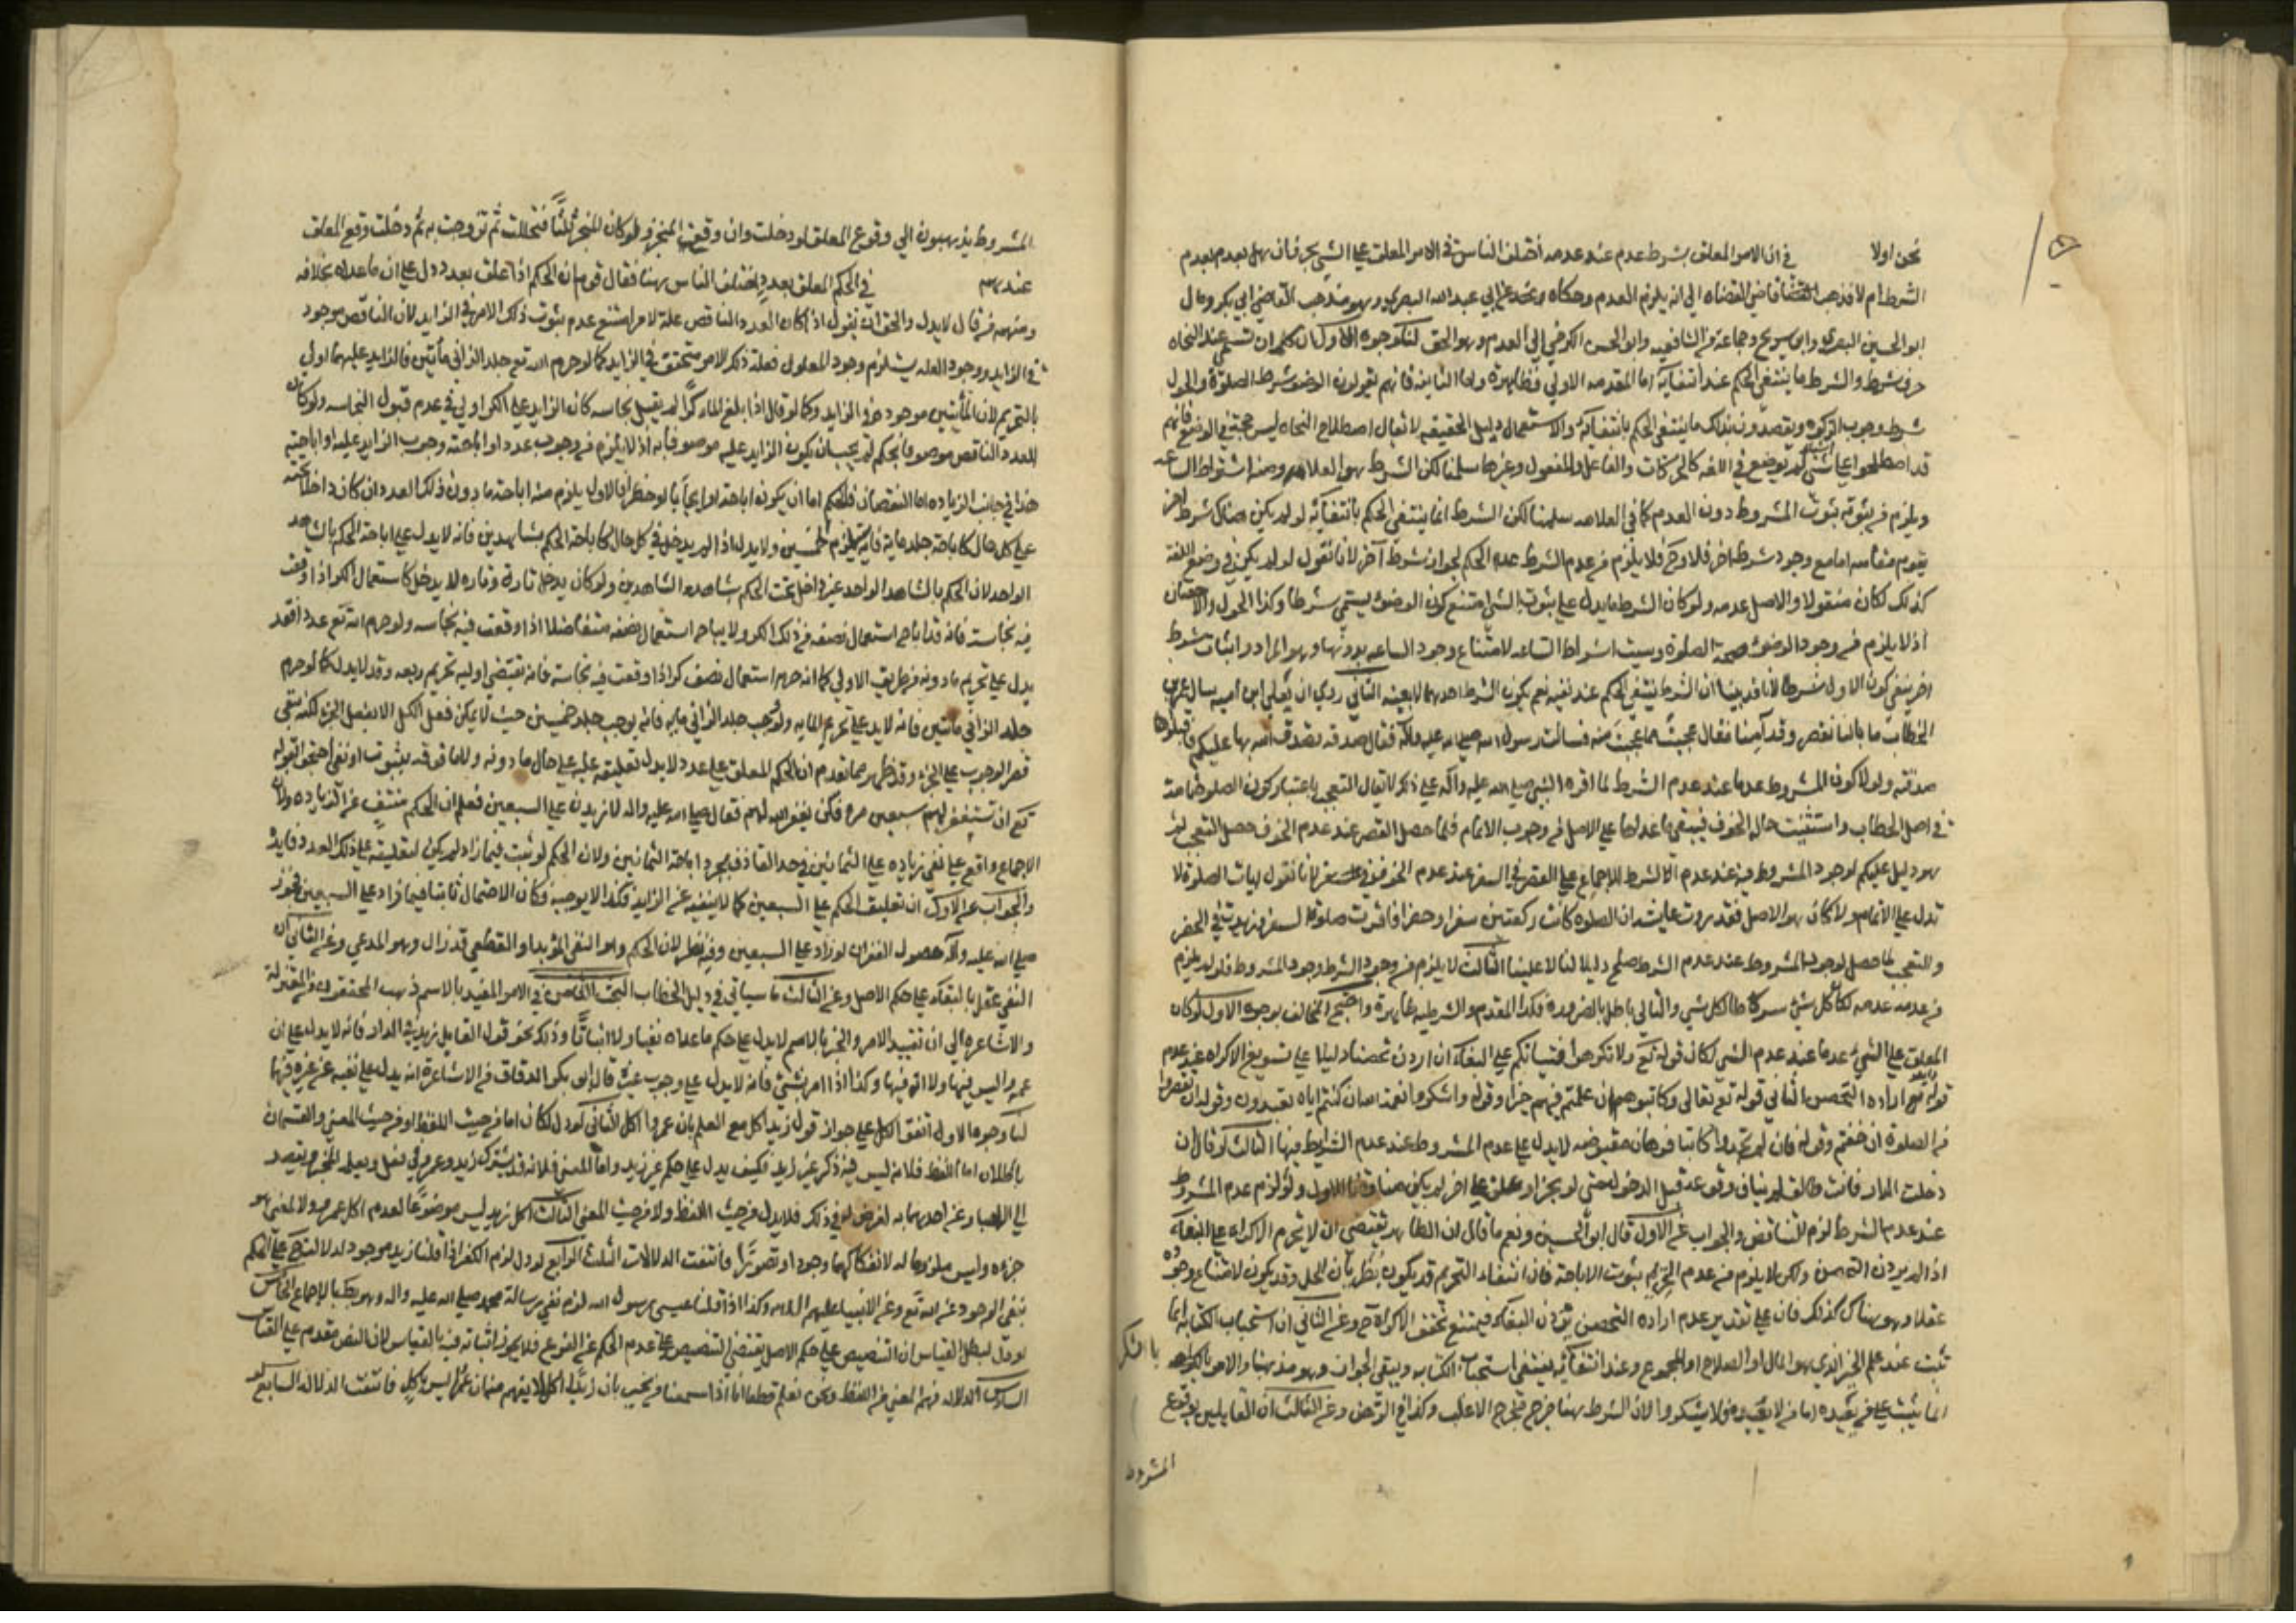 نحن اولا في ان الامر المعلق بشرط عدم عند عدمه اختلف الناس في الامر المعلق على الشيء بحرف ان هل يعدم بعدم
الشرط ام لا فذهب قاضي القضاه الى انه لا يلزم العدم وحكاه عن ابي عبد الله البصري وهو مذهب القاضي ابي بكر وقال
ابو الحسين البصري وابن سريج وجماعة من الشافعيه وابو الحسن الكرخي الى العدم وهو الحق لنا وجوه الاول ان كلمة ان تسمى عند النحاه
حرف شرط والشرط ما ينتفي الحكم عند انتفائه اما المقدمه الاولى فظاهرة واما الثانيه فانهم يقولون الوضوء شرط الصلوة والحول
شرط وجوب الزكوة ويقصدون بذلك ما ينتفي الحكم بانتفائه والاستعمال دليل الحقيقه لا يقال اصطلاح النحاه ليس حجة في الوضع فانهم
قد اصطلحوا على اشياء لم توضع في اللغه كالحركات والفاعل والمفعول وغيرها سلمنا لكن الشرط هو العلامه ومنه اشراط الساعه
ويلزم من ثبوته ثبوت المشروط دون العدم كما في العلامه سلمنا لكن الشرط انما ينتفي الحكم بانتفائه لو لم يكن هناك شرط اخر
يقوم مقامه اما مع وجود شرط اخر فلا وح فلا يلزم من عدم الشرط عدم الحكم لجواز شرط آخر لانا نقول لو لم يكن في وضع اللغة
كذلك لكان منقولا والاصل عدمه ولو كان الشرط ما يدل على ثبوت الشيء امتنع كون الوضوء يسمى شرطا وكذا الحول والاحصان
اذ لا يلزم من وجود الوضوء صحة الصلوة وسميت اشراط الساعه لامتناع وجود الساعه بدونها وهو المراد واثبات شرط
اخر ينفي كون الاول شرطا لانا قد بينا ان الشرط ينتفي الحكم عند نفيه نعم يكون الشرط احدهما لا بعينه الثاني روي ان يعلى ابن اميه سال عمر بن
الخطاب ما بالنا نقصر وقد آمنا فقال عجبت مما عجبت منه فسالت رسول الله صلى الله عليه وآله فقال صدقه تصدق الله بها عليكم فاقبلوا
صدقته ولولا كون المشروط عدما عند عدم الشرط لما اقره النبي صلى الله عليه وآله على ذلك لا يقال التعجب باعتبار كون الصلوة تامة
في اصل الخطاب واستثنيت حالة الخوف فيبقى ما عداها على الاصل من وجوب الاتمام فلما حصل القصر عند عدم الخوف حصل التعجب ثم
هو دليل عليكم لوجود المشروط فيه عند عدم الشرط للاجماع على القصر في السفر عند عدم الخوف لانا نقول ايات الصلوة لا
تدل على الاتمام ولا كان هو الاصل فقد روت عايشة ان الصلوه كانت ركعتين سفرا وحضرا فاقرت صلوة السفر وزيدت في الحضر
والتعجب لما حصل لوجود المشروط عند عدم الشرط صلح دليلا لنا لا علينا الثالث لا يلزم من وجود الشرط وجود المشروط فلو لم يلزم
من عدمه عدمه لكان كل شيء شرطا لكل شيء والتالي باطل بالضرورة فكذا المقدم والشرطيه ظاهرة واحتج المخالف بوجوه الاول لو كان
المعلق على الشيء عدما عند عدم الشيء لكان قوله تع ولا تكرهوا فتياتكم على البغاء ان اردن تحصنا دليلا على تسويغ الاكراه عند عدم
ارادة التحصن الثاني قوله تعالى وكاتبوهم ان علمتم فيهم خيرا وقوله واشكروا نعمة الله ان كنتم اياه تعبدون وقوله ان تقصروا
من الصلوة ان خفتم وقوله فان لم تجدوا كاتبا فرهان مقبوضه لا يدل على عدم المشروط عند عدم الشرايط فيها الثالث لو قال ان
دخلت الدار فانت طالق لم يناف وقوعه قبل الدخول حتى لو نجز او علق على اخر لم يكن مناقضا للاول ولو لزم عدم المشروط
عند عدم الشرط لزم التناقض والجواب عن الاول قال ابو الحسين ونعم ما قال ان الظاهر يقتضي ان لا يحرم الاكراه على البغاء
اذا لم يردن التحصن ولكن لا يلزم من عدم التحريم ثبوت الاباحة فان انتفاء التحريم قد يكون بطريان الحل وقد يكون لامتناع وجوده
عقلا وهو هناك كذلك فان على تقدير عدم ارادة التحصن يردن البغاء فيمتنع تحقق الاكراه ح وعن الثاني ان استحباب الكتابه انما
يثبت عند علم الخير الذي هو المال او الصلاح او المجموع وعند انتفائه ينتفي استحباب الكتابه ويبقى الجواز وهو مذهبنا والامر بالشكر
انما يثبت على من يعبده اما من لا يعبده فلا يشكروا لان الشرط هنا خرج مخرج الاغلب وكذا في الرهن وعن الثالث ان القايلين بوقوع
المشروط
المشروط يذهبون الى وقوع المعلق لو دخلت وان وقع المنجز ولو كان المنجز ثلثا فتحللت ثم تزوجت به ثم دخلت وقع المعلق
عندهم في الحكم المعلق بعدد اختلف الناس هنا فقال قوم ان الحكم اذا علق بعدد دل على ان ما عداه بخلافه
ومنهم من قال لا يدل والحق ان نقول اذا كان العدد الناقص علة لامر امتنع عدم ثبوت ذلك الامر في الزايد لان الناقص موجود
في الزايد ووجود العله يستلزم وجود المعلول فعلة ذلك الامر متحقق في الزايد كما لو حرم الله تع جلد الزاني مأتين فالزايد عليهما اولى
بالتحريم لان المأتين موجود في الزايد وكما لو قال اذا بلغ الماء كرا لم يقبل نجاسه كان الزايد على الكر اولى في عدم قبول النجاسه ولو كان
العدد الناقص موصوفا بحكم لم يجب ان يكون الزايد عليه موصوفا به اذ لا يلزم من وجوب عدد او اباحته وجوب الزايد عليه او اباحته
هذا في جانب الزياده اما النقصان فالحكم اما ان يكون اباحة او ايجابا او حظرا فالاول يلزم منه اباحة ما دون ذلك العدد ان كان داخلا تحته
على كل حال كاباحة جلد مايه فانه يلزم خمسين ولا يدل اذا لم يدخل في كل حال كاباحة الحكم بشاهدين فانه لا يدل على اباحة الحكم بالشاهد
الواحد لان الحكم بالشاهد الواحد غير داخل تحت الحكم بشهادة الشاهدين ولو كان يدخل تارة وتاره لا يدخل كاستعمال الكر اذا وقعت
فيه نجاسة فانه قد اباح استعمال نصفه من ذلك الكر ولا يباح استعمال نصفه متفاضلا اذا وقعت فيه نجاسه ولو حرم الله تع عددا فقد
يدل على تحريم ما دونه من طريق الاولى كما انه حرم استعمال نصف كر اذا وقعت فيه نجاسة فانه يقتضي اوليه تحريم ربعه وقد لا يدل كما لو حرم
جلد الزاني مأتين فانه لا يدل على تحريم المايه ولو اوجب جلد الزاني مايه فانه يوجب جلد خمسين حيث لا يمكن فعل الكل الا بفعل الجزء لكنه ينفي
قصر الوجوب على الجزء وقد ظهر مما تقدم ان الحكم المعلق على عدد لا يدل تعليقه عليه على حال ما دونه ولا ما فوقه بثبوت او نفي احتجوا بقوله
تع ان تستغفر لهم سبعين مرة فلن يغفر الله لهم فقال صلى الله عليه واله لازيدن على السبعين فعلم ان الحكم منتف عن الزياده ولان
الاجماع واقع على نفي زياده على الثمانين في حد القاذف بمجرد اباحة الثمانين ولان الحكم لو ثبت فيما زاد لم يكن لتعليقه على ذلك العدد فايدة
والجواب عن الاول ان تعليق الحكم على السبعين كما لا ينفيه عن الزايد فكذا لا يوجبه وكان الاحتمال ثابتا فيما زاد على السبعين فجوز
صلى الله عليه وآله حصول الغفران لو زاد على السبعين وفيه نظر لان الحكم وهو النفي المؤبد او القطعي قد زال وهو المدعي وعن الثاني ان
النفي عقل بالبقاء على حكم الاصل وعن الثالث ما سياتي في دليل الخطاب البحث الخامس في الامر المقيد بالاسم ذهب المحققون من المعتزلة
والاشاعره الى ان تقييد الامر والخبر بالاسم لا يدل على حكم ما عداه نفيا ولا اثباتا وذلك نحو قول القايل زيد في الدار فانه لا يدل على ان
عمروا ليس فيها ولا انه فيها وكذا اذا امر بشيء فانه لا يدل على وجوب غيره قال ابو بكر الدقاق من الاشاعرة انه يدل على نفيه عن غيره
لنا وجوه الاول اتفق الكل على جواز قول زيد اكل مع العلم بان عمروا اكل الثاني لو دل لكان اما من حيث اللفظ او من حيث المعنى والقسمان
باطلان اما اللفظ فلانه ليس فيه ذكر غير زيد فكيف يدل على حكم غير زيد واما المعنى فلانه قد يشترك زيد وعمرو في فعل ويعلم المخبر ويقصد
الى الاخبار عن احدهما به لغرض له في ذلك فلا يدل من حيث اللفظ ولا من حيث المعنى الثالث اكل زيد ليس موضوعا لعدم اكل عمرو ولا لمعنى هو
جزءه وليس ملزوما له لانفكاكهما وجودا وتصورا فانتفت الدلالات الثلث الرابع لو دل لزم الكفر اذا قلنا زيد موجود
بنفي الوجود عن الله تع وعن الانبياء عليهم السلام وكذا اذا قلنا عيسى رسول الله لزم نفي رسالة محمد صلى الله عليه واله وهو بط بالاجماع الخامس
لو دل لبطل القياس لان التنصيص على حكم الاصل يقتضي التنصيص على عدم الحكم عن الفرع فلا يجوز اثباته فيه بالقياس لان النص مقدم على القياس
السادس الدلاله فهم المعنى من اللفظ ونحن نعلم قطعا انا اذا سمعنا من يخبر بان زيدا اكل لا يفهم منه ان عمرا ليس باكل فانتفت الدلاله السابع لو